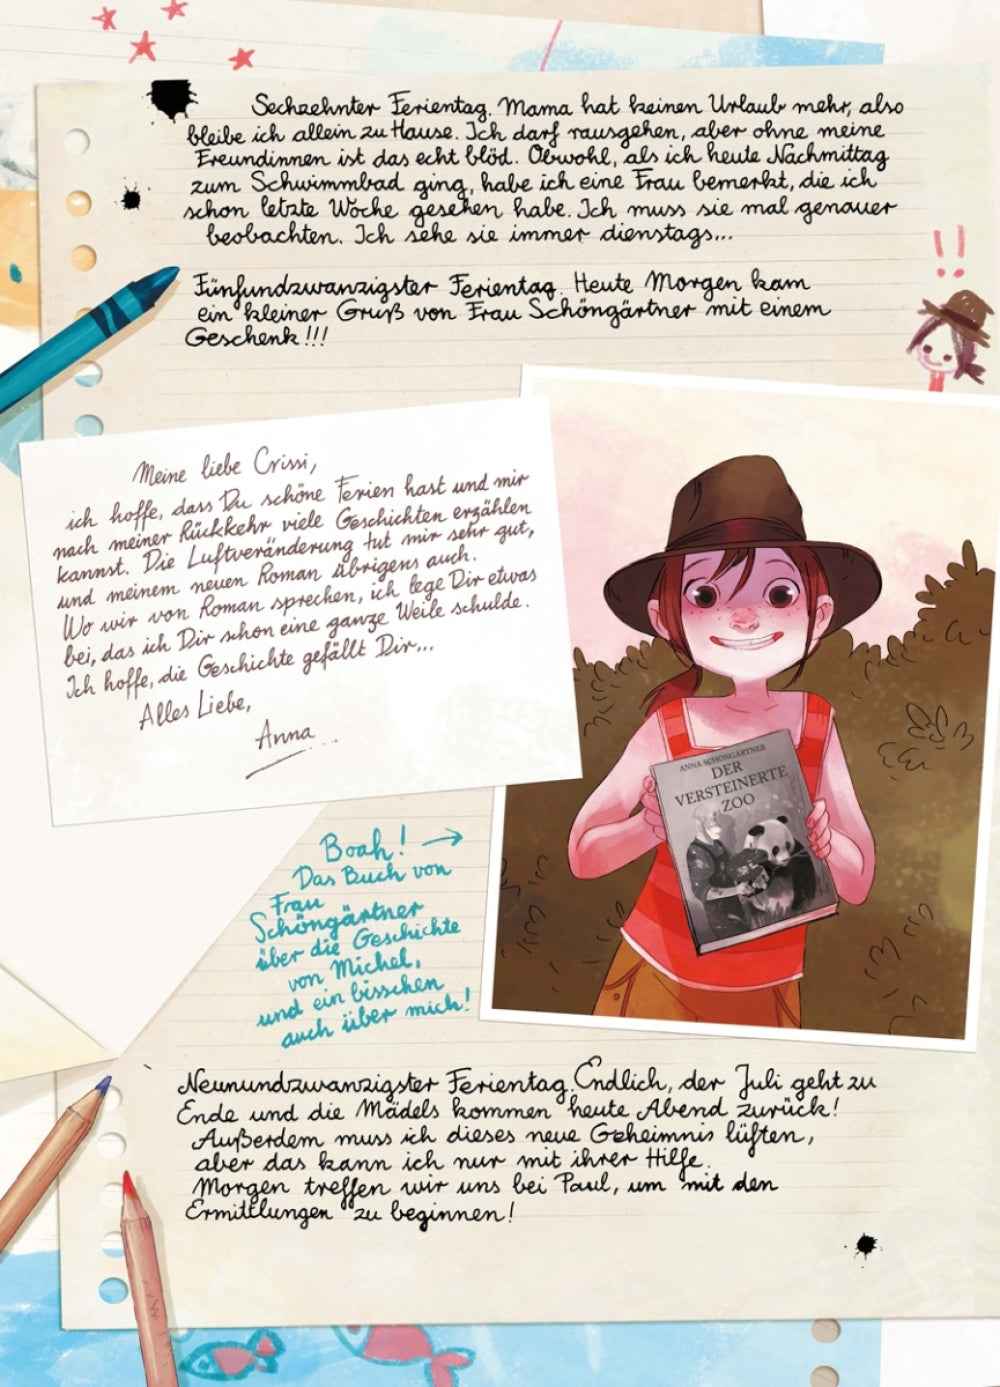 Sechzehnter Ferientag. Mama hat keinen Urlaub mehr, also
bleibe ich allein zu Hause. Ich darf rausgehen, aber ohne meine
Freundinnen ist das echt blöd. Obwohl, als ich heute Nachmittag
zum Schwimmbad ging, habe ich eine Frau bemerkt, die ich
schon letzte Woche gesehen habe. Ich muss sie mal genauer
beobachten. Ich sehe sie immer dienstags...
Fünfundzwanzigster Ferientag. Heute Morgen kam
ein kleiner Gruß von Frau Schöngärtner mit einem
Geschenk!!!
!!
Meine liebe Crissi,
ich hoffe, dass Du schöne Ferien hast und mir
nach meiner Rückkehr viele Geschichten erzählen
kannst. Die Luftveränderung tut mir sehr gut,
und meinem neuen Roman übrigens auch.
Wo wir von Roman sprechen, ich lege Dir etwas
bei, das ich Dir schon eine ganze Weile schulde.
Ich hoffe, die Geschichte gefällt Dir...
Alles Liebe,
Anna
ANNA SCHÖNGÄRTNER
DER
VERSTEINERTE
ZOO
Boah! →
Das Buch von
Frau
Schöngärtner
über die Geschichte
von Michel,
und ein bisschen
auch über mich!
Neunundzwanzigster Ferientag. Endlich, der Juli geht zu
Ende und die Mädels kommen heute Abend zurück!
Außerdem muss ich dieses neue Geheimnis lüften,
aber das kann ich nur mit ihrer Hilfe.
Morgen treffen wir uns bei Paul, um mit den
Ermittlungen zu beginnen!